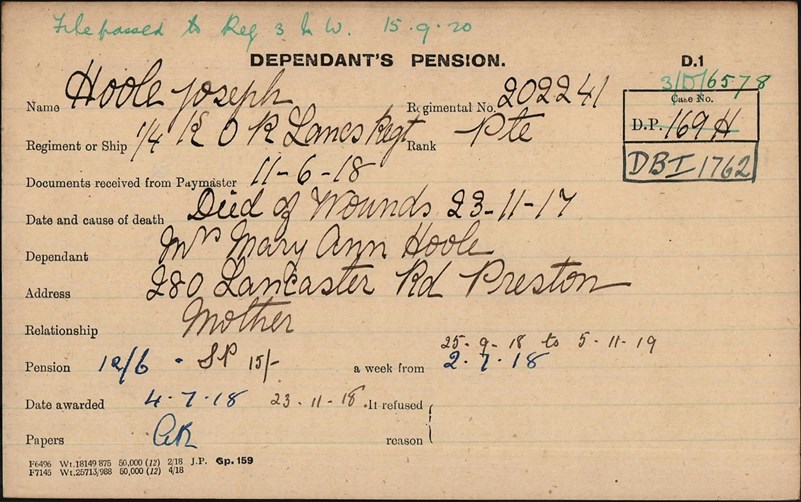 File passed to Reg 3 L W. 15.9.20
DEPENDANT'S PENSION. D.1
3/D/6578
Name Hoole Joseph Regimental No. 202241
Case No.
D.P. 169 H
Regiment or Ship 1/4 K O R Lancs Regt Rank Pte
DBI 1762
Documents received from Paymaster 11-6-18
Date and cause of death Died of Wounds 23-11-17
Dependant Mrs Mary Ann Hoole
Address 280 Lancaster Rd Preston
Relationship Mother
25-9-18 to 5-11-19
Pension 12/6 - SP 15/- a week from 2.7.18
Date awarded 4.7.18 23.11.18. If refused
Papers reason
F6496 Wt.18149 875 50,000 (12) 2/18 J.P. Gp. 159
F7145 Wt.25713/988 50,000 (12) 4/18